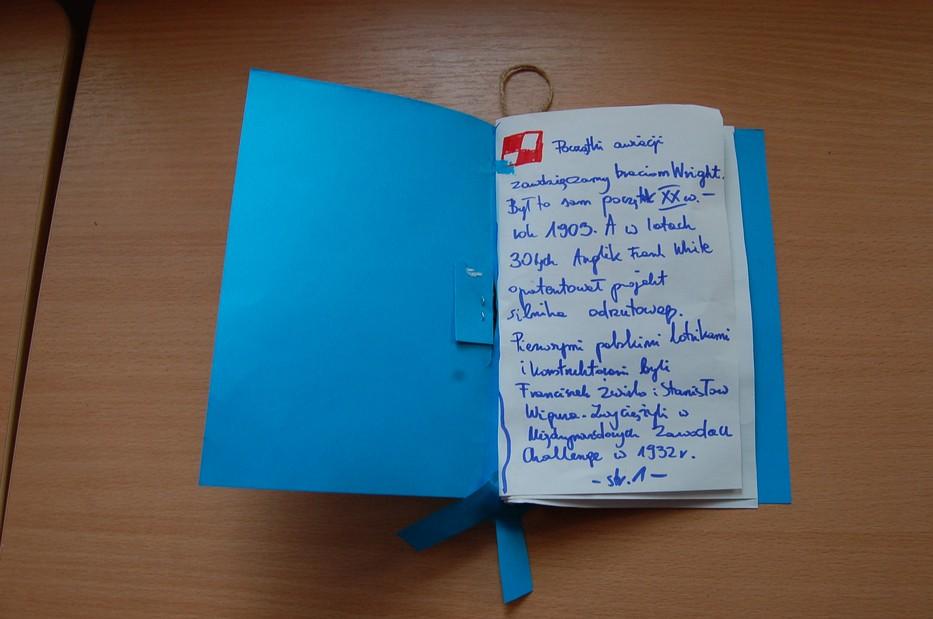 Początki awiacji
zawdzięczamy braciom Wright.
Był to sam początk XX w. –
rok 1903. A w latach
30tych Anglik Frank White
opatentował projekt
silnika odrzutowego.
Pierwszymi polskimi lotnikami
i konstruktorami byli
Franciszek Żwirko i Stanisław
Wigura. Zwyciężyli w
Międzynarodowych Zawodach
Challenge w 1932 r.
- str. 1 -